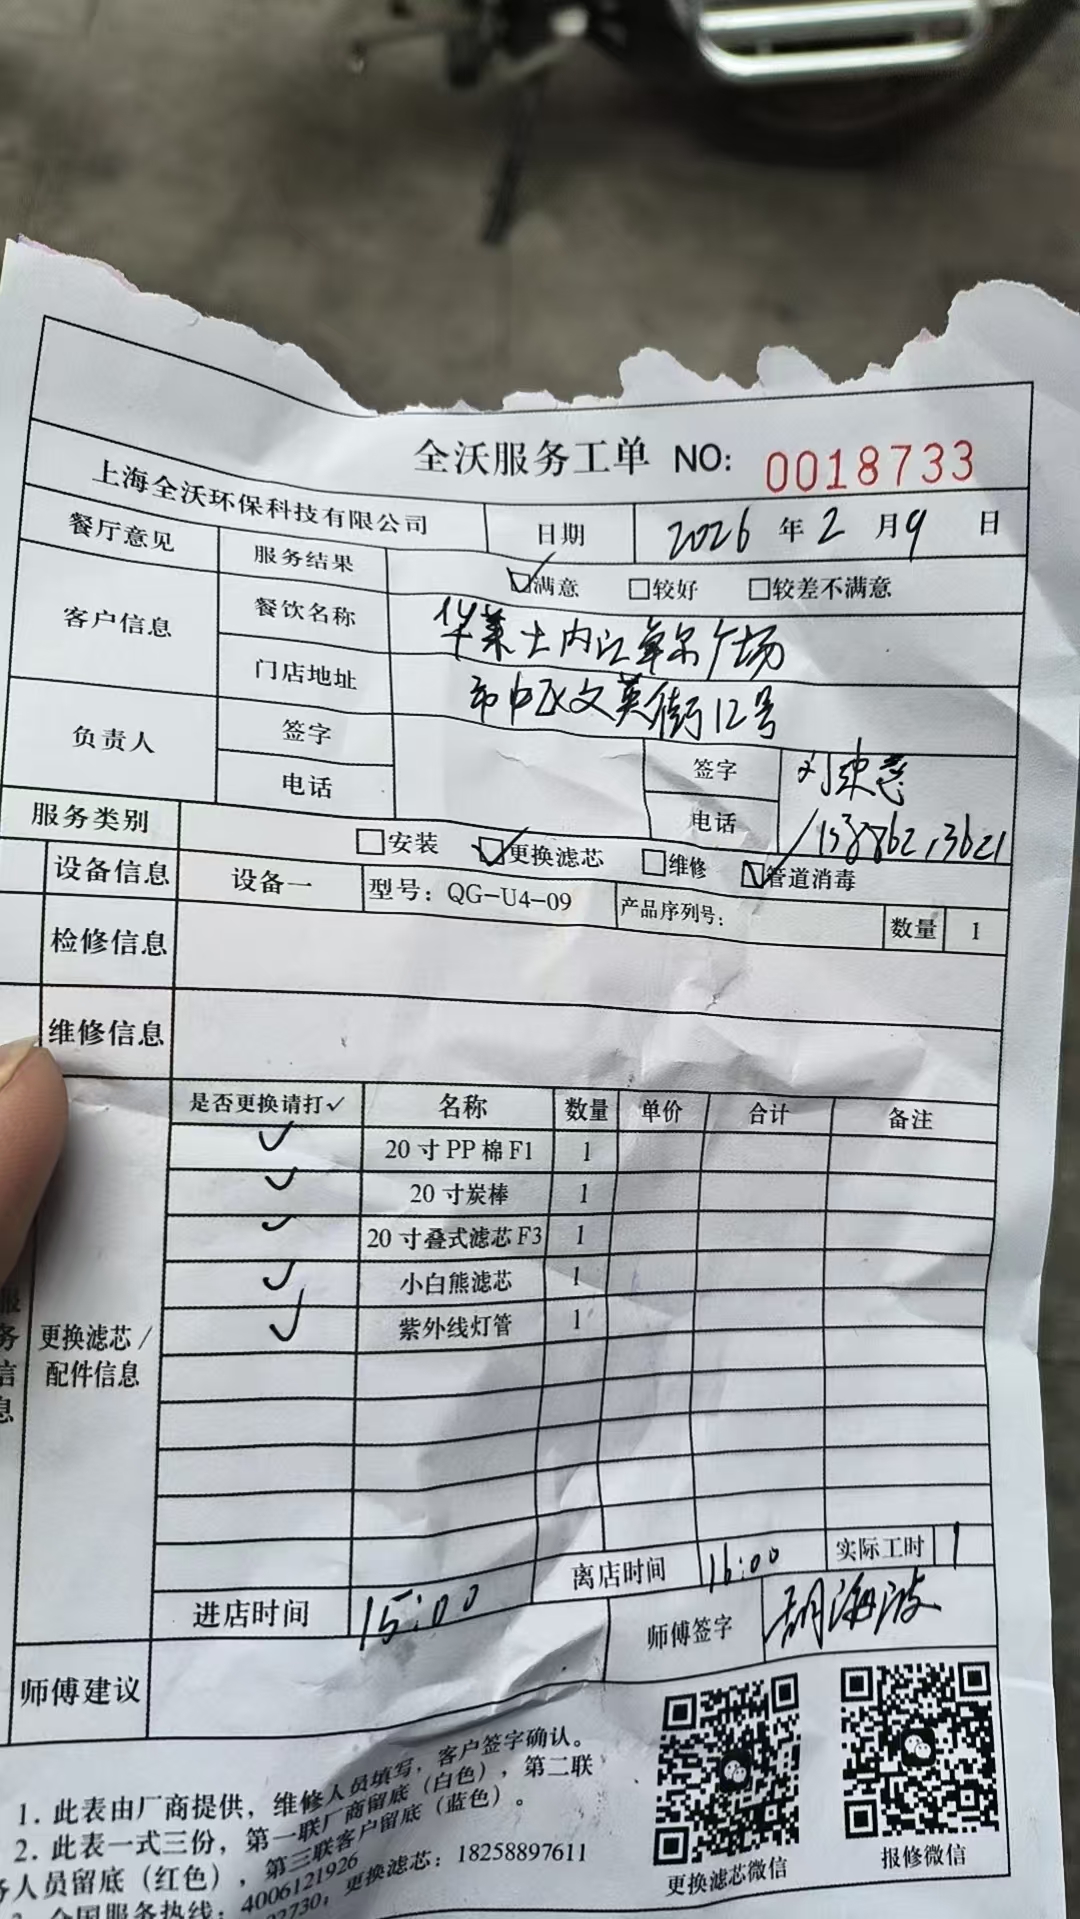 全沃服务工单 NO: 0018733
上海全沃环保科技有限公司 日期 2026 年 2 月 9 日
餐厅意见 服务结果 满意 较好 较差不满意
客户信息 餐饮名称 华莱士内江单尔广场
门店地址 市中区文英街12号
负责人 签字 签字
电话 电话
服务类别 安装 更换滤芯 维修 管道消毒
设备信息 设备一 型号: QG-U4-09 产品序列号: 数量 1
检修信息
维修信息
是否更换请打✓ 名称 数量 单价 合计 备注
✓ 20寸PP棉F1 1
✓ 20寸炭棒 1
✓ 20寸叠式滤芯F3 1
✓ 小白熊滤芯 1
✓ 紫外线灯管 1
更换滤芯/
配件信息
进店时间 15:00 离店时间 16:00 实际工时 1
师傅签字 胡海波
师傅建议
1. 此表由厂商提供，维修人员填写，客户签字确认。
2. 此表一式三份，第一联厂商留底（白色），第二联
务人员留底（红色），第三联客户留底（蓝色）。
全国服务热线: 4006121926
更换滤芯: 18258897611
更换滤芯微信 报修微信